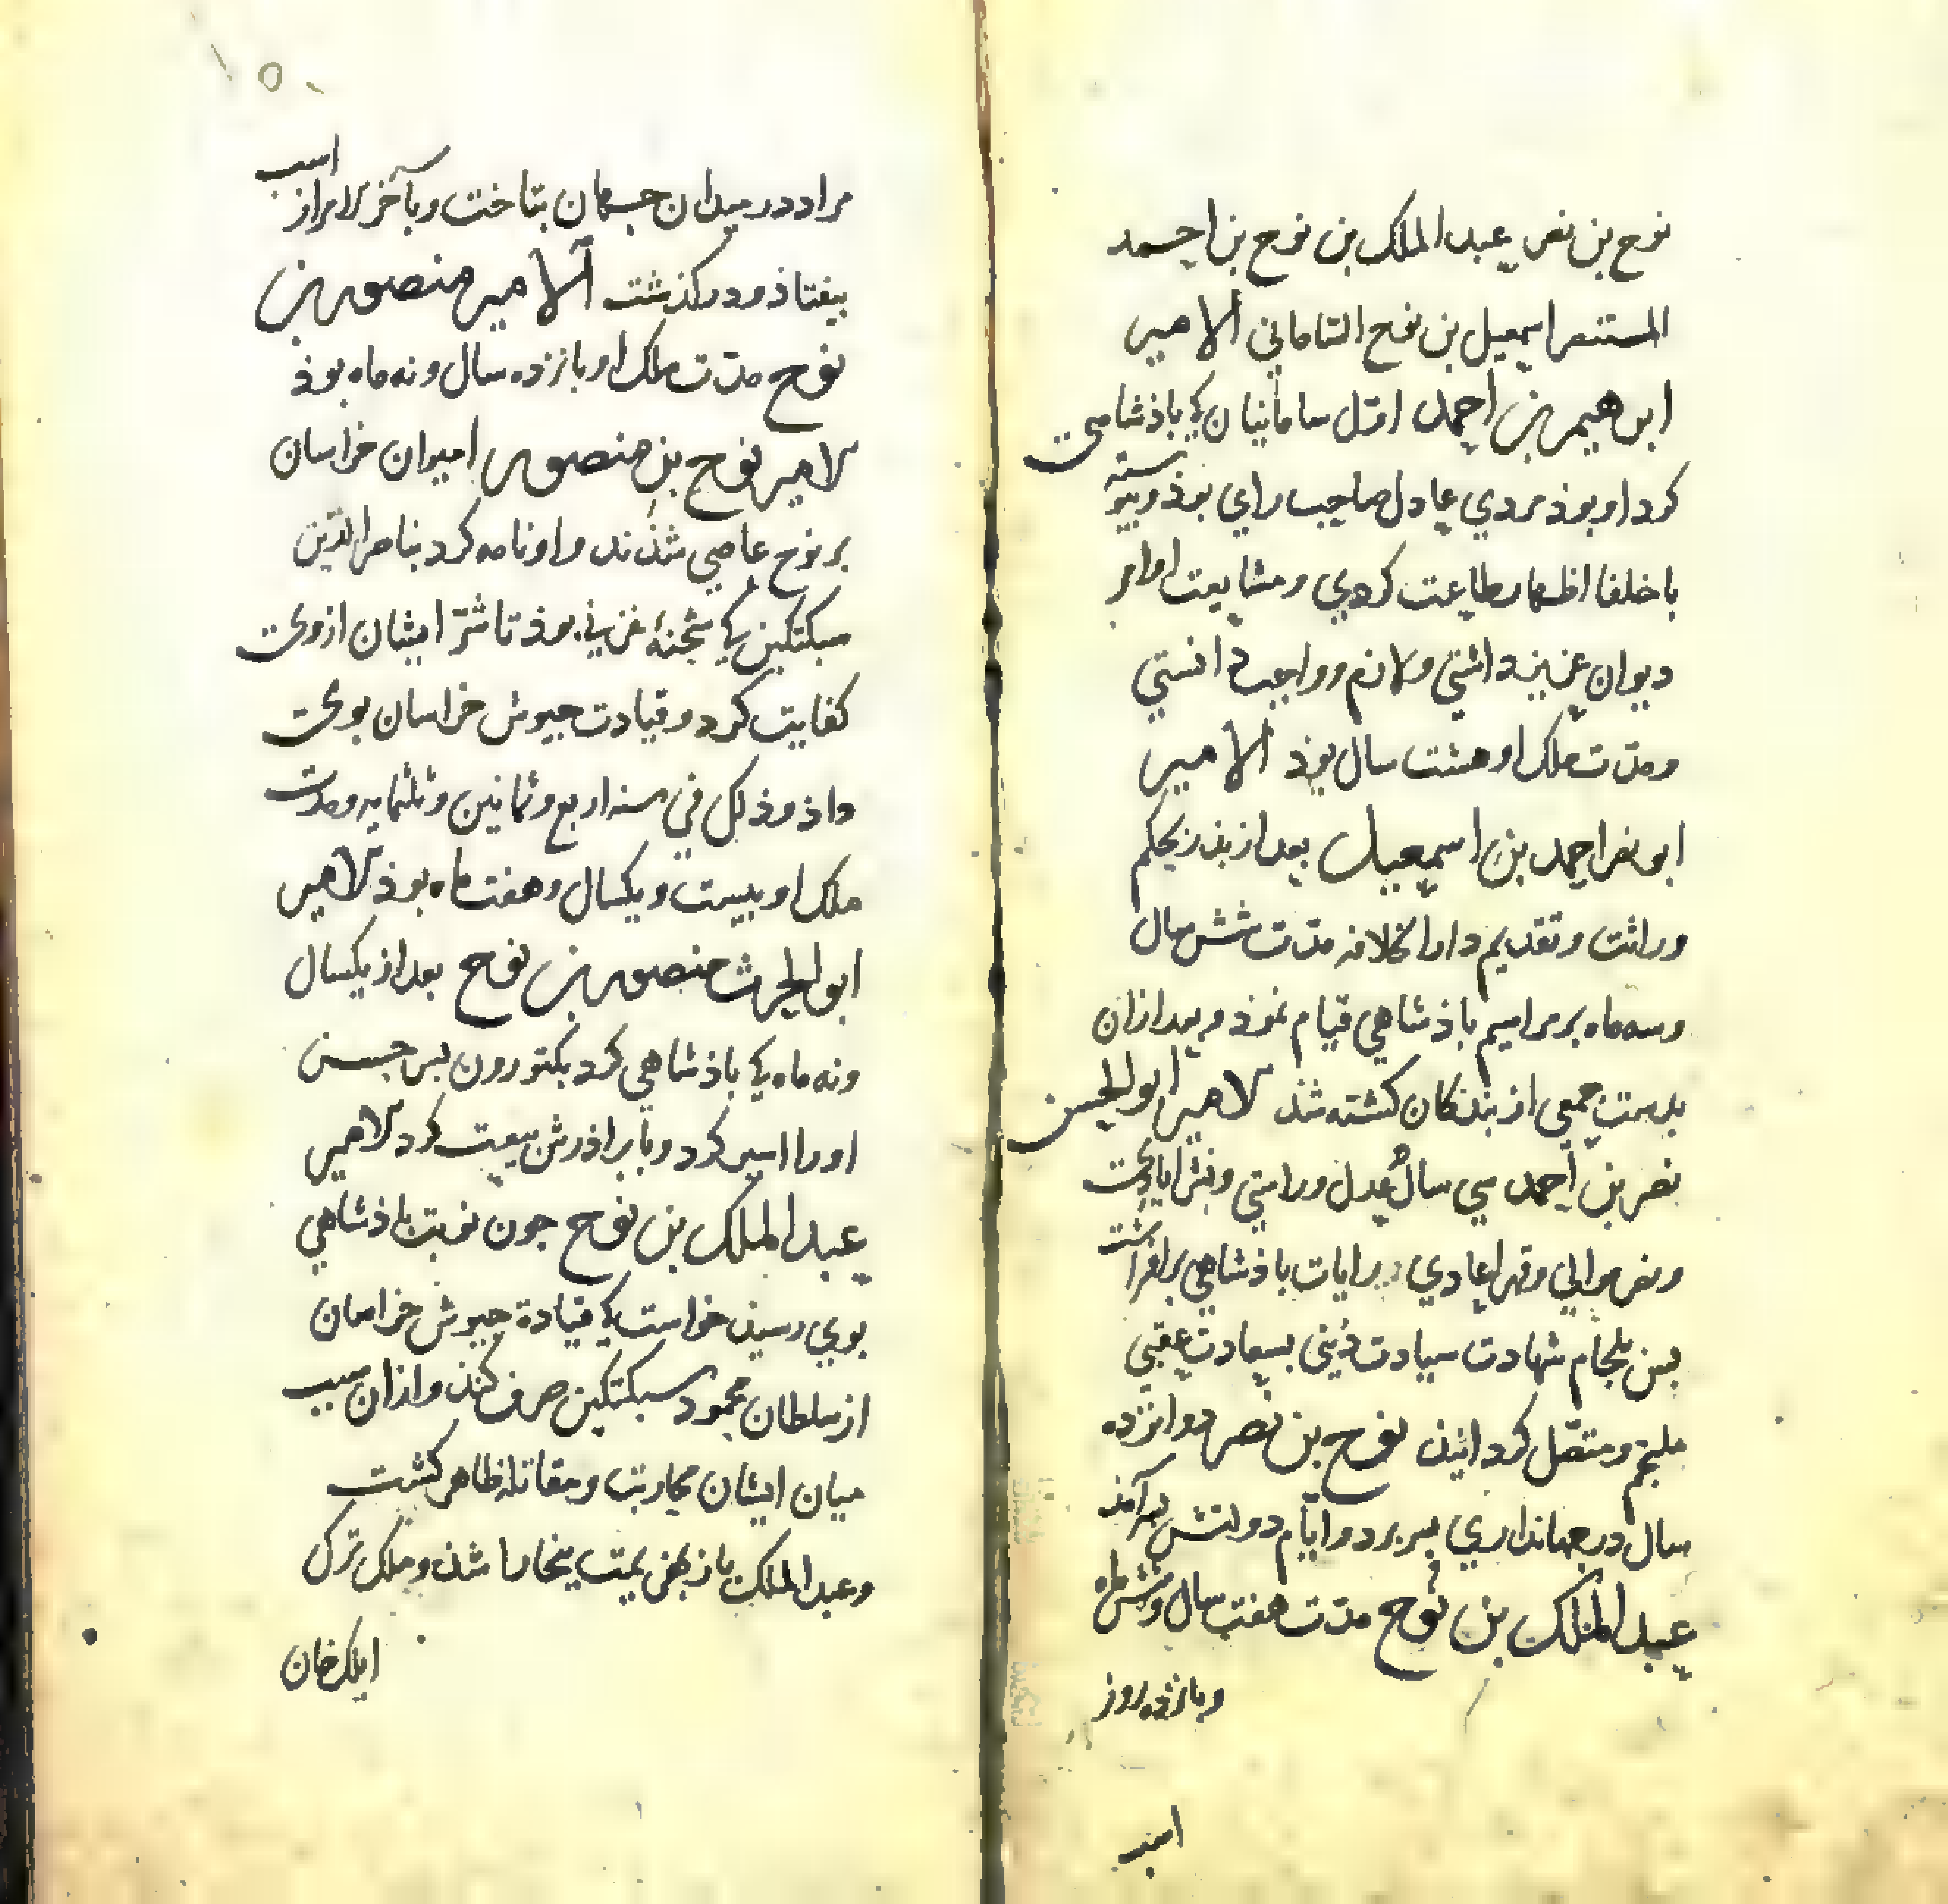 نوح بن نصر عبدالملک بن نوح بن احمد
المستنصر اسمعیل بن نوح السّامانی الامیر
ابرهیم بن احمد اوّل سامانیان کی باذشاهی
کرد او بوذ مردی عادل صاحب رای بوذ و پیوسته
با خلفا اظهار طاعت کردی و مشایعت اوامر
دیوان عزیز داشتی و لازم و واجب دانستی
و مدّت ملک او هشت سال بوذ الامیر
ابو نصر احمد بن اسمعیل بعد از بذر بحکم
وراثت و تقدیم دار الخلافه مدّت شش سال
و سه ماه بر مراسم باذشاهی قیام نموذ و بعد ازان
بدست جمعی از بندکان کشته شذ الامیر ابوالحسن
نصر بن احمد سی سال عدل و راستی و نشر ایادی
و نصر موالی و قهر اعادی رایات باذشاهی برافراشت
بس بلجام شهادت سیادت دنیی بسعادت عقبی
ملجم و متصّل کردانیذ نوح بن نصر دوانزده
سال در جهانداری بسر برد و ایّام دولتش سرآمذ
عبدالملک بن نوح مدّت هفت سال و شش ماه
و بانزده روز
اسب
۱۵۰
مراد در میدان جسمان بتاخت و بآخر الامر از اسب
بیفتاذ و درکذشت الامیر منصور بن
نوح مدّت ملک او بانزده سال و نه ماه بوذ
الامیر نوح بن منصور امیران خراسان
بر نوح عاصی شذند و او نامه کرد بناصرالدّین
سبکتکین کی شحنهٔ غزنی بوذ تا شرّ ایشان ازوی
کفایت کرد و قیادت جیوش خراسان بوی
داذ و ذلک فی سنه اربع و ثمانین و ثلثمایه و مدّت
ملک او بیست و یکسال و هفت ماه بوذ الامیر
ابوالحرث منصور بن نوح بعد از یکسال
و نه ماه کی باذشاهی کرد بکتوزون بس حسن
او را اسیر کرد و با براذرش بیعت کرد الامیر
عبدالملک بن نوح جون نوبت باذشاهی
بوی رسیذ خواست کی قیادة جیوش خراسان
از سلطان محمود سبکتکین صرف کند و ازان سبب
میان ایشان محاربت و مقاتله ظاهر کشت
و عبدالملک بهزیمت ببخارا شذ و ملک ترک
ایلک خان